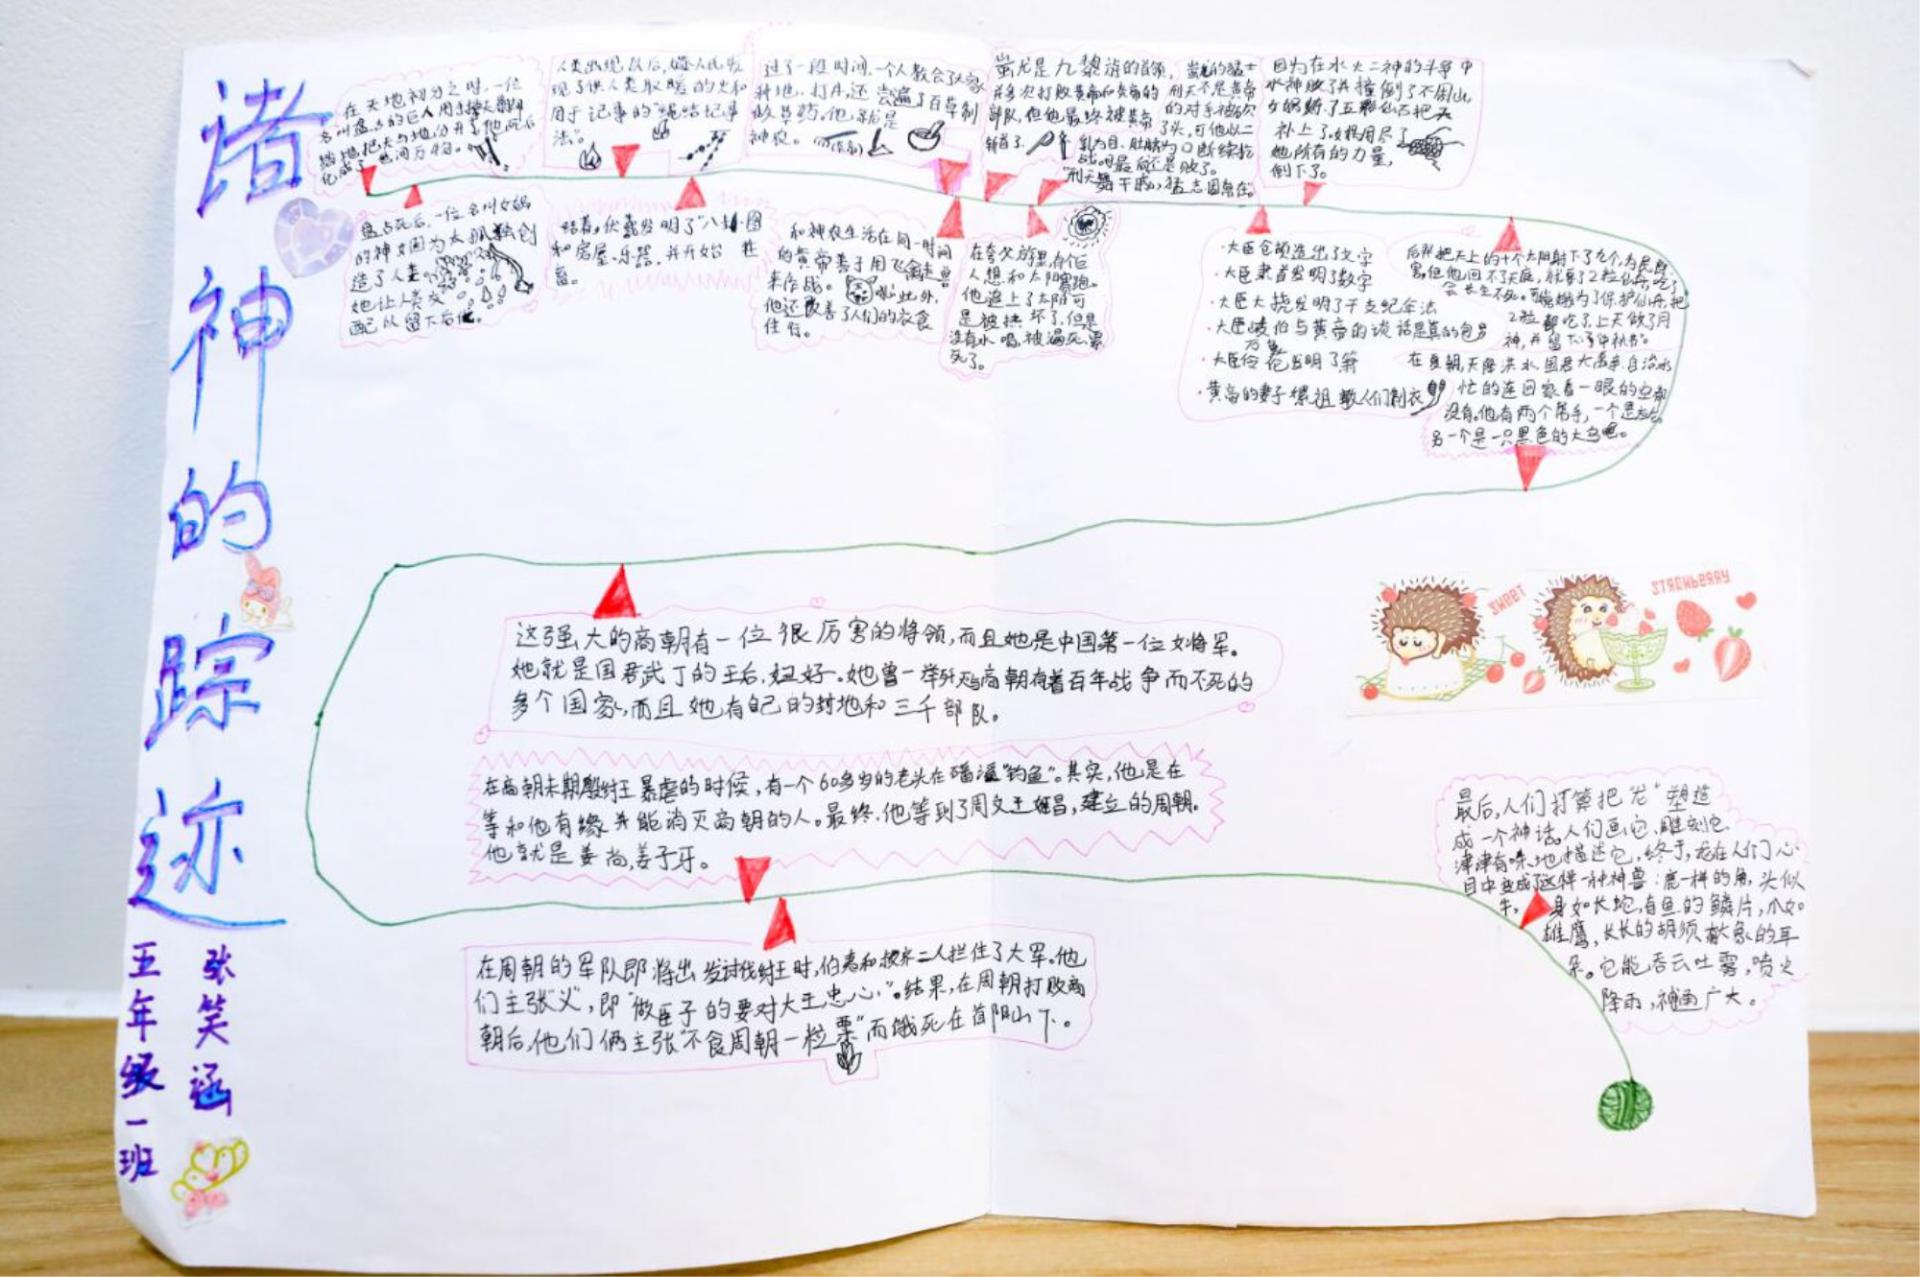 诸神的踪迹
五年级一班
张笑涵
在天地初分之时,一位
名叫盘古的巨人用手撑天脚
踏地,把天与地分开了。他死后
化成了世间万物。
人类出现以后,燧人氏发
现了供人类取暖的火和
用于记事的“绳结记事
法”。
过了一段时间,一个人教会了大家
种地、打井,还尝遍了百草制
做草药。他就是
神农。
蚩尤是九黎族的首领,
并多次打败黄帝和炎帝的
部队,但他最终被黄帝
斩首了。
刑天不是黄帝
的对手被砍
了头,可他以二
乳为目、肚脐为口断续抗
战。可最后还是败了。
“刑天舞干戚,猛志固常在。”
因为在水火二神的斗争中
水神败了并撞倒了不周山
女娲炼了五彩仙石把天
补上了。女娲用尽了
她所有的力量,
倒下了。
盘古死后,一位名叫女娲
的神女因为太孤独创
造了人类。
她让人类交
配以留下后代。
结着,伏羲发明了“八卦”图
和房屋、乐器,并开始
畜。
和神农生活在同一时间
的黄帝善于用飞禽走兽
来作战。此外,
他还改善了人们的衣食
住行。
在夸父族里,有个巨
人想和太阳赛跑。
他追上了太阳可
是被烘坏了,但是
没有水喝,被渴死、累
死了。
·大臣仓颉造出了文字
·大臣隶首发明了数字
·大臣大挠发明了干支纪年法
·大臣岐伯与黄帝的谈话是真的包罗
万象
·大臣伶伦发明了箫
·黄帝的妻子嫘祖教人们制衣
后羿把天上的十个太阳射下了九个,为民除
害,但他回不了天庭,就拿了2粒仙丹,吃了
会长生不死。可嫦娥为了保护仙丹,把
2粒都吃了,上天做了月
神,并留下了“中秋节”。
在夏朝,天降洪水,国君大禹亲自治水
忙的连回家看一眼的空都
没有。他有两个帮手,一个是应龙,
另一个是一只黑色的大乌龟。
这强大的商朝有一位很厉害的将领,而且她是中国第一位女将军。
她就是国君武丁的王后,妇好。她曾一举歼灭与商朝有着百年战争而不死的
多个国家,而且她有自己的封地和三千部队。
在商朝末期殷纣王暴虐的时候,有一个60多岁的老头在磻溪“钓鱼”。其实,他是在
等和他有缘并能消灭商朝的人。最终,他等到了周文王姬昌,建立的周朝。
他就是姜尚,姜子牙。
在周朝的军队即将出发讨伐纣王时,伯夷和叔齐二人拦住了大军。他
们主张“义”,即“做臣子的要对大王忠心”。结果,在周朝打败商
朝后,他们俩主张“不食周朝一粒粟”而饿死在首阳山下。
SWEET
STRAWBERRY
最后,人们打算把“龙”塑造
成一个神话。人们画它,雕刻它,
津津有味地描述它,终于,龙在人们心
目中变成了这样一种神兽:鹿一样的角,头似
牛,身如长蛇,有鱼的鳞片,爪如
雄鹰,长长的胡须,大象的耳
朵。它能吞云吐雾,喷火
降雨,神通广大。